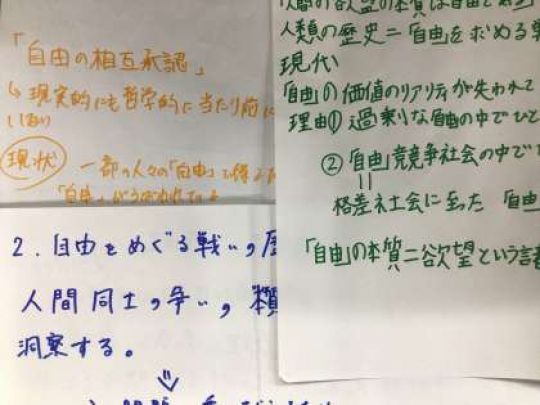 「自由の相互承認」
↳ 現実的にも哲学的に当たり前に
現状
一部の人々の「自由」
「自由」がうばわれている
2. 自由をめぐる戦いの歴
人間同士の争いの、本質
洞察する。
⇓
人間の欲望の本質は自由で
人類の歴史=「自由」を求める
現代
「自由」の価値のリアリティが失われて
理由① 過剰な自由の中でひと
② 「自由」競争社会の中で
||
格差社会に至った 「自由
「自由」の本質=欲望という